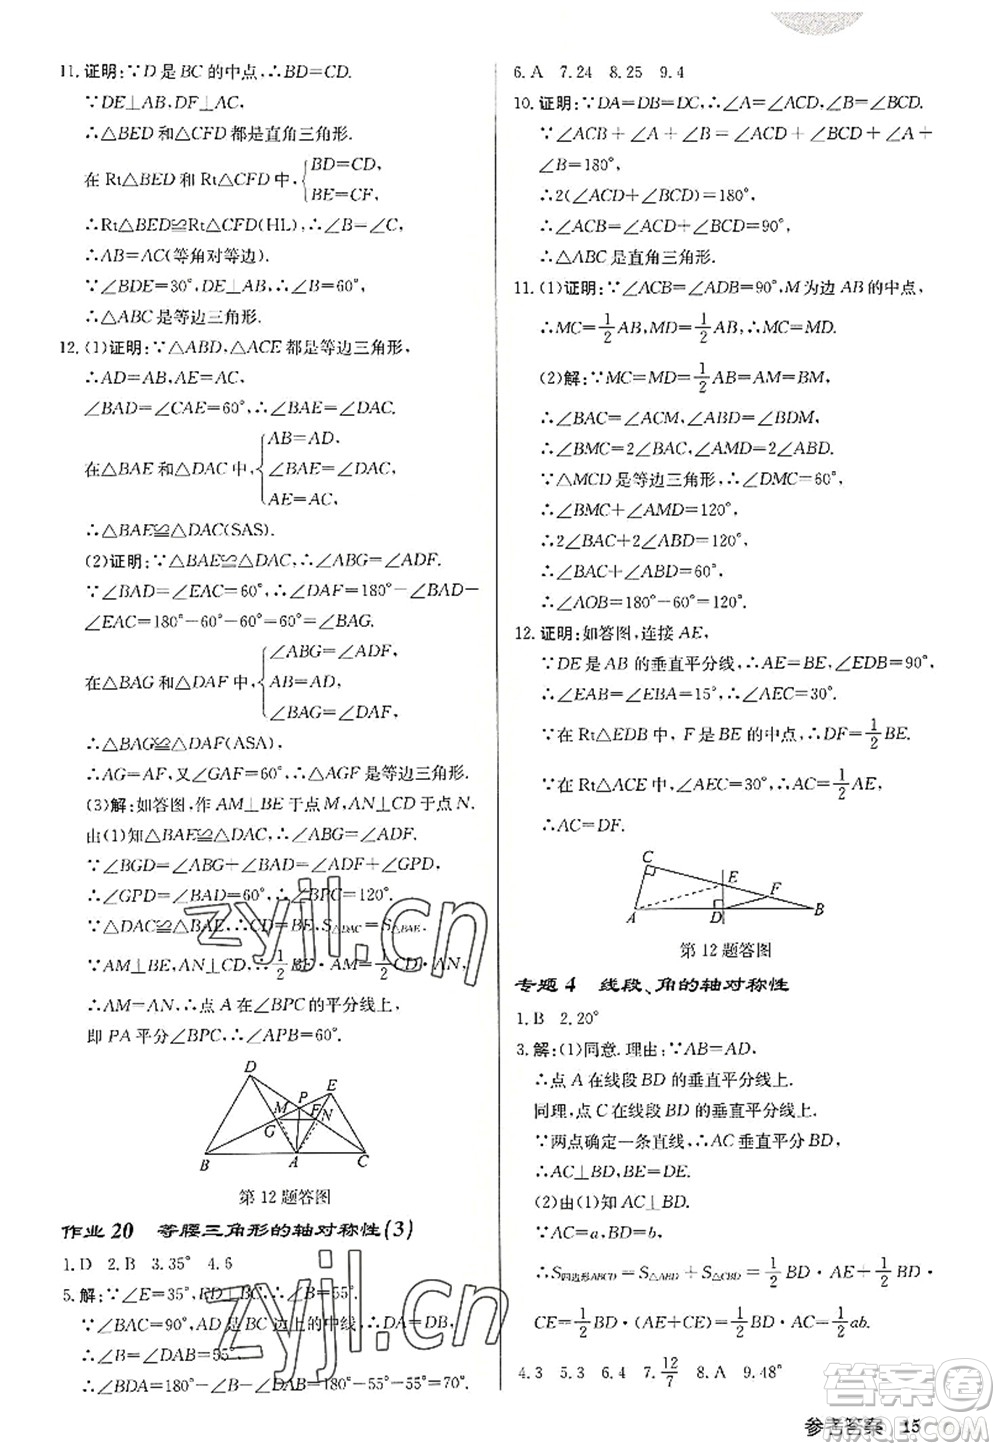 11.证明:∵D是BC的中点,∴BD=CD.
∵DE⊥AB,DF⊥AC,
∴△BED和△CFD都是直角三角形.
在Rt△BED和Rt△CFD中,{BD=CD,
BE=CF,
∴Rt△BED≌Rt△CFD(HL),∴∠B=∠C,
∴AB=AC(等角对等边).
∵∠BDE=30°,DE⊥AB,∴∠B=60°,
∴△ABC是等边三角形.
12.(1)证明:∵△ABD,△ACE都是等边三角形,
∴AD=AB,AE=AC,
∠BAD=∠CAE=60°,∴∠BAE=∠DAC.
在△BAE和△DAC中,{AB=AD,
∠BAE=∠DAC,
AE=AC,
∴△BAE≌△DAC(SAS).
(2)证明:∵△BAE≌△DAC,∴∠ABG=∠ADF.
∵∠BAD=∠EAC=60°,∴∠DAF=180°-∠BAD-
∠EAC=180°-60°-60°=60°=∠BAG,
在△BAG和△DAF中,{∠ABG=∠ADF,
AB=AD,
∠BAG=∠DAF,
∴△BAG≌△DAF(ASA),
∴AG=AF,又∠GAF=60°,∴△AGF是等边三角形.
(3)解:如答图,作AM⊥BE于点M,AN⊥CD于点N.
由(1)知△BAE≌△DAC,∴∠ABG=∠ADF.
∵∠BGD=∠ABG+∠BAD=∠ADF+∠GPD,
∴∠GPD=∠BAD=60°,∴∠BPC=120°.
∵△DAC≌△BAE,∴CD=BE,S△DAC=S△BAE,
∵AM⊥BE,AN⊥CD,∴1/2BE·AM=1/2CD·AN,
∴AM=AN,∴点A在∠BPC的平分线上,
即PA平分∠BPC,∴∠APC=60°.
D
E
P
M
F
N
G
B
A
C
第12题答图
作业20 等腰三角形的轴对称性(3)
1.D 2.B 3.35° 4.6
5.解:∵∠E=35°,ED⊥BC,∴∠B=55°.
∵∠BAC=90°,AD是BC边上的中线,∴DA=DB,
∴∠B=∠DAB=55°,
∴∠BDA=180°-∠B-∠DAB=180°-55°-55°=70°.
6.A 7.24 8.25 9.4
10.证明:∵DA=DB=DC,∴∠A=∠ACD,∠B=∠BCD.
∵∠ACB+∠A+∠B=∠ACD+∠BCD+∠A+
∠B=180°,
∴2(∠ACD+∠BCD)=180°,
∴∠ACB=∠ACD+∠BCD=90°,
∴△ABC是直角三角形.
11.(1)证明:∵∠ACB=∠ADB=90°,M为边AB的中点,
∴MC=1/2AB,MD=1/2AB,∴MC=MD.
(2)解:∵MC=MD=1/2AB=AM=BM,
∴∠BAC=∠ACM,∠ABD=∠BDM,
∴∠BMC=2∠BAC,∠AMD=2∠ABD.
∵△MCD是等边三角形,∴∠DMC=60°,
∴∠BMC+∠AMD=120°,
∴2∠BAC+2∠ABD=120°,
∴∠BAC+∠ABD=60°,
∴∠AOB=180°-60°=120°.
12.证明:如答图,连接AE,
∵DE是AB的垂直平分线,∴AE=BE,∠EDB=90°,
∴∠EAB=∠EBA=15°,∴∠AEC=30°.
∵在Rt△EDB中,F是BE的中点,∴DF=1/2BE.
∵在Rt△ACE中,∠AEC=30°,∴AC=1/2AE,
∴AC=DF.
C
E
F
A
D
B
第12题答图
专题4 线段、角的轴对称性
1.B 2.20°
3.解:(1)同意.理由:∵AB=AD,
∴点A在线段BD的垂直平分线上.
同理,点C在线段BD的垂直平分线上.
∵两点确定一条直线,∴AC垂直平分BD,
∴AC⊥BD,BE=DE.
(2)由(1)知AC⊥BD.
∵AC=a,BD=b,
∴S四边形ABCD=S△ABD+S△CBD=1/2BD·AE+1/2BD·
CE=1/2BD·(AE+CE)=1/2BD·AC=1/2ab.
4.3 5.3 6.4 7.12/7 8.A 9.48°
zyjl.cn
zyjl.cn
答案圈
参考答案 15